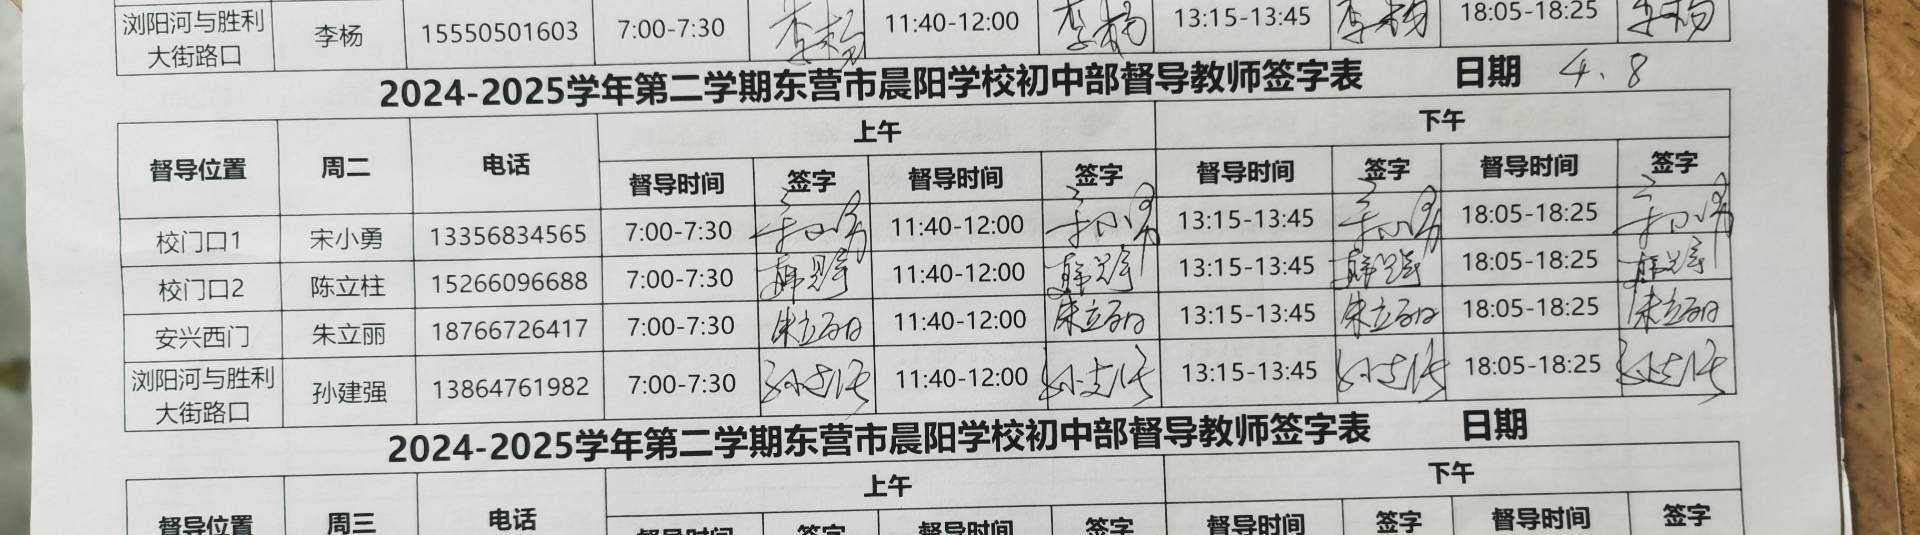 浏阳河与胜利大街路口 李杨 15550501603 7:00-7:30 李杨 11:40-12:00 李杨 13:15-13:45 李杨 18:05-18:25 李杨
2024-2025学年第二学期东营市晨阳学校初中部督导教师签字表 日期 4.8
督导位置 周二 电话 上午 下午
督导时间 签字 督导时间 签字 督导时间 签字 督导时间 签字
校门口1 宋小勇 13356834565 7:00-7:30 宋小勇 11:40-12:00 宋小勇 13:15-13:45 宋小勇 18:05-18:25 宋小勇
校门口2 陈立柱 15266096688 7:00-7:30 11:40-12:00 13:15-13:45 18:05-18:25
安兴西门 朱立丽 18766726417 7:00-7:30 朱立丽 11:40-12:00 朱立丽 13:15-13:45 朱立丽 18:05-18:25 朱立丽
浏阳河与胜利大街路口 孙建强 13864761982 7:00-7:30 孙建强 11:40-12:00 孙建强 13:15-13:45 孙建强 18:05-18:25 孙建强
2024-2025学年第二学期东营市晨阳学校初中部督导教师签字表 日期
督导位置 周三 电话 上午 下午
督导时间 签字 督导时间 签字 督导时间 签字 督导时间 签字